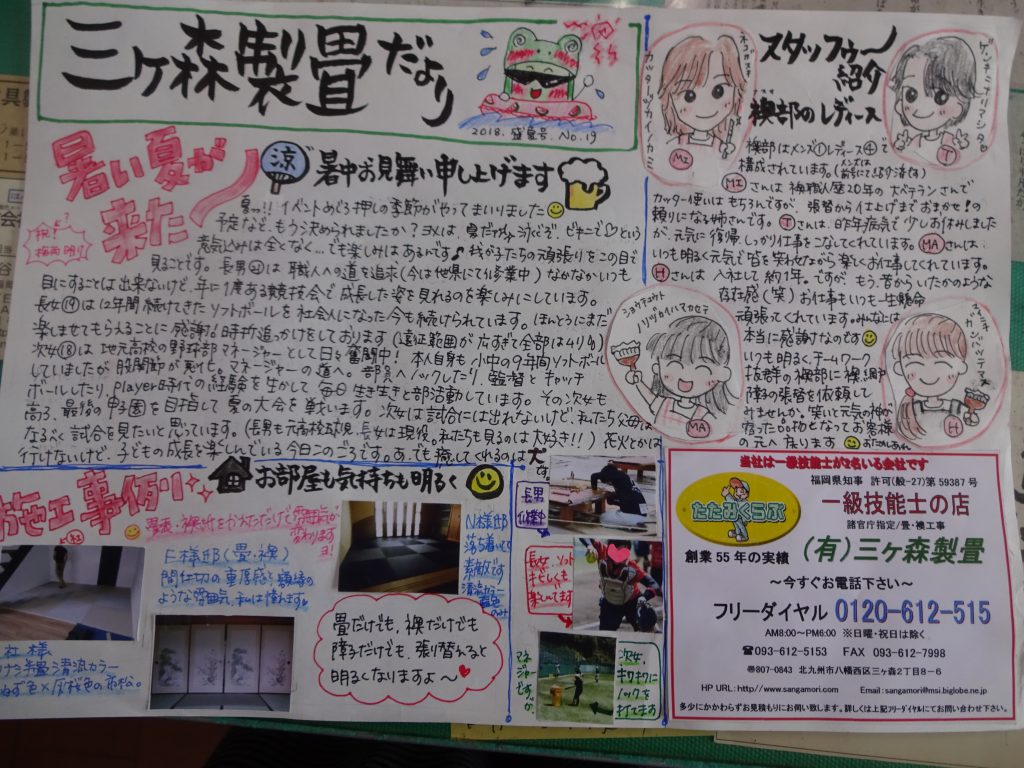 三ヶ森製畳だより
2018. 盛夏号. No.19
暑い夏が
来たー
涼
暑中お見舞い申し上げます
夏っ!!イベントめじろ押しの季節がやってまいりました
予定など、もう決められましたか?ヨメは、夏だから
煮気込みは全くなく…でも楽しみはあるんです♪我が子たちの頑張りをこの目で
見ることです。長男㉑は 職人への道を追求(今は他県にて修業中)なかなかいつも
目にすることは出来ないけど、年に1度ある競技会で成長した姿を見れるのを楽しみにしています。
長女⑲は12年間続けてきたソフトボールを社会人になった今も続けられています。ほんとうにまだ
楽しませてもらえることに感謝!時折追っかけをしております(遠征範囲が広すぎて全部は
次女⑱は地元高校の野球部マネージャーとして日々奮闘中!本人自身も小中の9年間ソフトボール
していましたが股関節が悪化。マネージャーの道へ。部員へノックしたり、監督とキャッチ
ボールしたり、player時代の経験を生かして毎日生き生きと部活動しています。その次女も
高3、最後の甲子園を目指して夏の大会を戦います。次女は試合には出れないけど、私たち父母は
なるべく試合を見たいと思っています。(長男も元高校球児 長女は現役。私たちも見るのは大好き!!)花火とかは
行けないけど、子どもの成長を楽しんでいる今日このごろです。あ、でも癒してくれるのは犬です。
スタッフゥー
紹介
襖部のレディース
カッターヅカイノカミ
MI
ゲンキニナリマシタ。
T
襖部はメンズ①レディース④で
構成されています。(メンズは
前号にて紹介済み)
MIさんは襖職人歴20年の大ベテランさんで
カッター使いはもちろんですが、張替から仕上げまでおまかせ!の
頼りになる姉さんです。Tさんは、昨年病気で少しお休みしました
が、元気に復帰、しっかり仕事をこなしてくれています。MAさんは、
いつも明るく元気で皆を笑わせながら楽しくお仕事してくれています。
Hさんは 入社して約1年。ですが、もう、昔からいたかのような
存在感(笑)お仕事もいつも一生懸命
頑張ってくれています。みんなには
本当に感謝なのです
いつも明るく、チームワーク
抜群の襖部に襖、網戸
障子の張替を依頼して
みませんか。笑いと元気の神が
宿った品物となってお客様
の元へ参ります
ショウチョウト
ノリヅカイハマカセテ
MA
H
施工事例り
お部屋も気持ちも明るく
畳表・襖紙をかえただけで雰囲気が
変わりますヨ!
F様邸(畳・襖)
間仕切の重厚感と額縁の
ような雰囲気、私は憧れます
N様邸
落ち着いて
素敵です
清流カラー
藍色
のみ
社様
清流カラー
ねず色×灰桜色の市松。
畳だけでも、襖だけでも
障子だけでも、張り替えると
明るくなりますよ〜
長男
修業中
長女、ソフト
忙しくも
楽しんでます
マネージャーですが、
次女、
キワキワに
ノックを
打てます
当社は一級技能士が2名いる会社です
福岡県知事 許可(般-27)第59387号
たたみくらぶ
一級技能士の店
諸官庁指定/畳・襖工事
創業55年の実績
(有)三ヶ森製畳
〜今すぐお電話下さい〜
フリーダイヤル 0120-612-515
AM8:00〜PM6:00 ※日曜・祝日は除く
☎093-612-5153 FAX 093-612-7998
〠807-0843 北九州市八幡西区三ヶ森2丁目8-6
HP URL:http://www.sangamori.com Email:sangamori@msi.biglobe.ne.jp
多少にかかわらずお見積もりにお伺い致します。詳しくは上記フリーダイヤルにてお問い合わせ下さい。